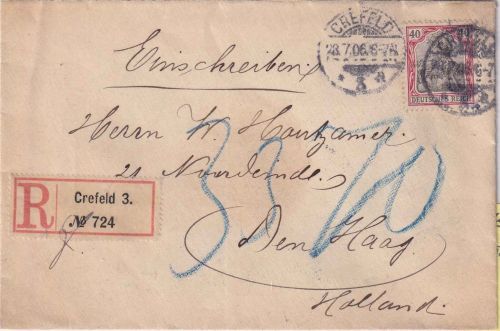 CREFELD
28.7.06.6-7N.
* 3 a
40 40
DEUTSCHES REICH
Einschreiben.
Herrn W. Houtzamer
21 Noordeinde
Den Haag
Holland.
R
Crefeld 3.
№ 724